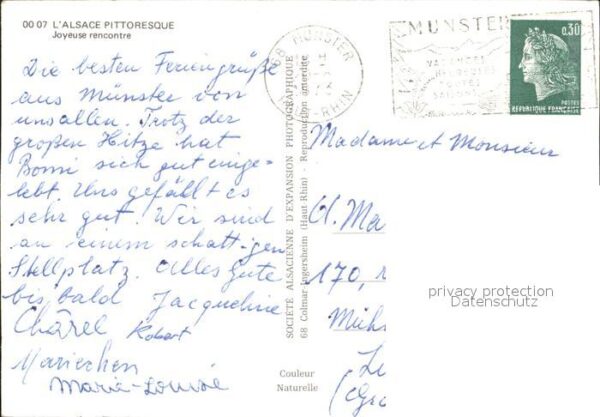 00 07 L'ALSACE PITTORESQUE
Joyeuse rencontre
Die besten Feriengrüße
aus Münster von
uns allen. Trotz der
großen Hitze hat
Bomi sich gut einge-
lebt. Uns gefällt es
sehr gut. Wir sind
an einem schattigen
Stellplatz. Alles Gute
bis bald Jacqueline
Chârel Robert
Mariechen
Marie-Louise
SOCIÉTÉ ALSACIENNE D'EXPANSION PHOTOGRAPHIQUE
68 Colmar-Ingersheim (Haut Rhin) - Reproduction interdite
Couleur
Naturelle
68 MUNSTER
RHIN
MUNSTER
VACANCES
0,30
POSTES
REPUBLIQUE FRANÇAISE
Madame et Monsieur
A. Ma
170, r
Müh
privacy protection
Datenschutz